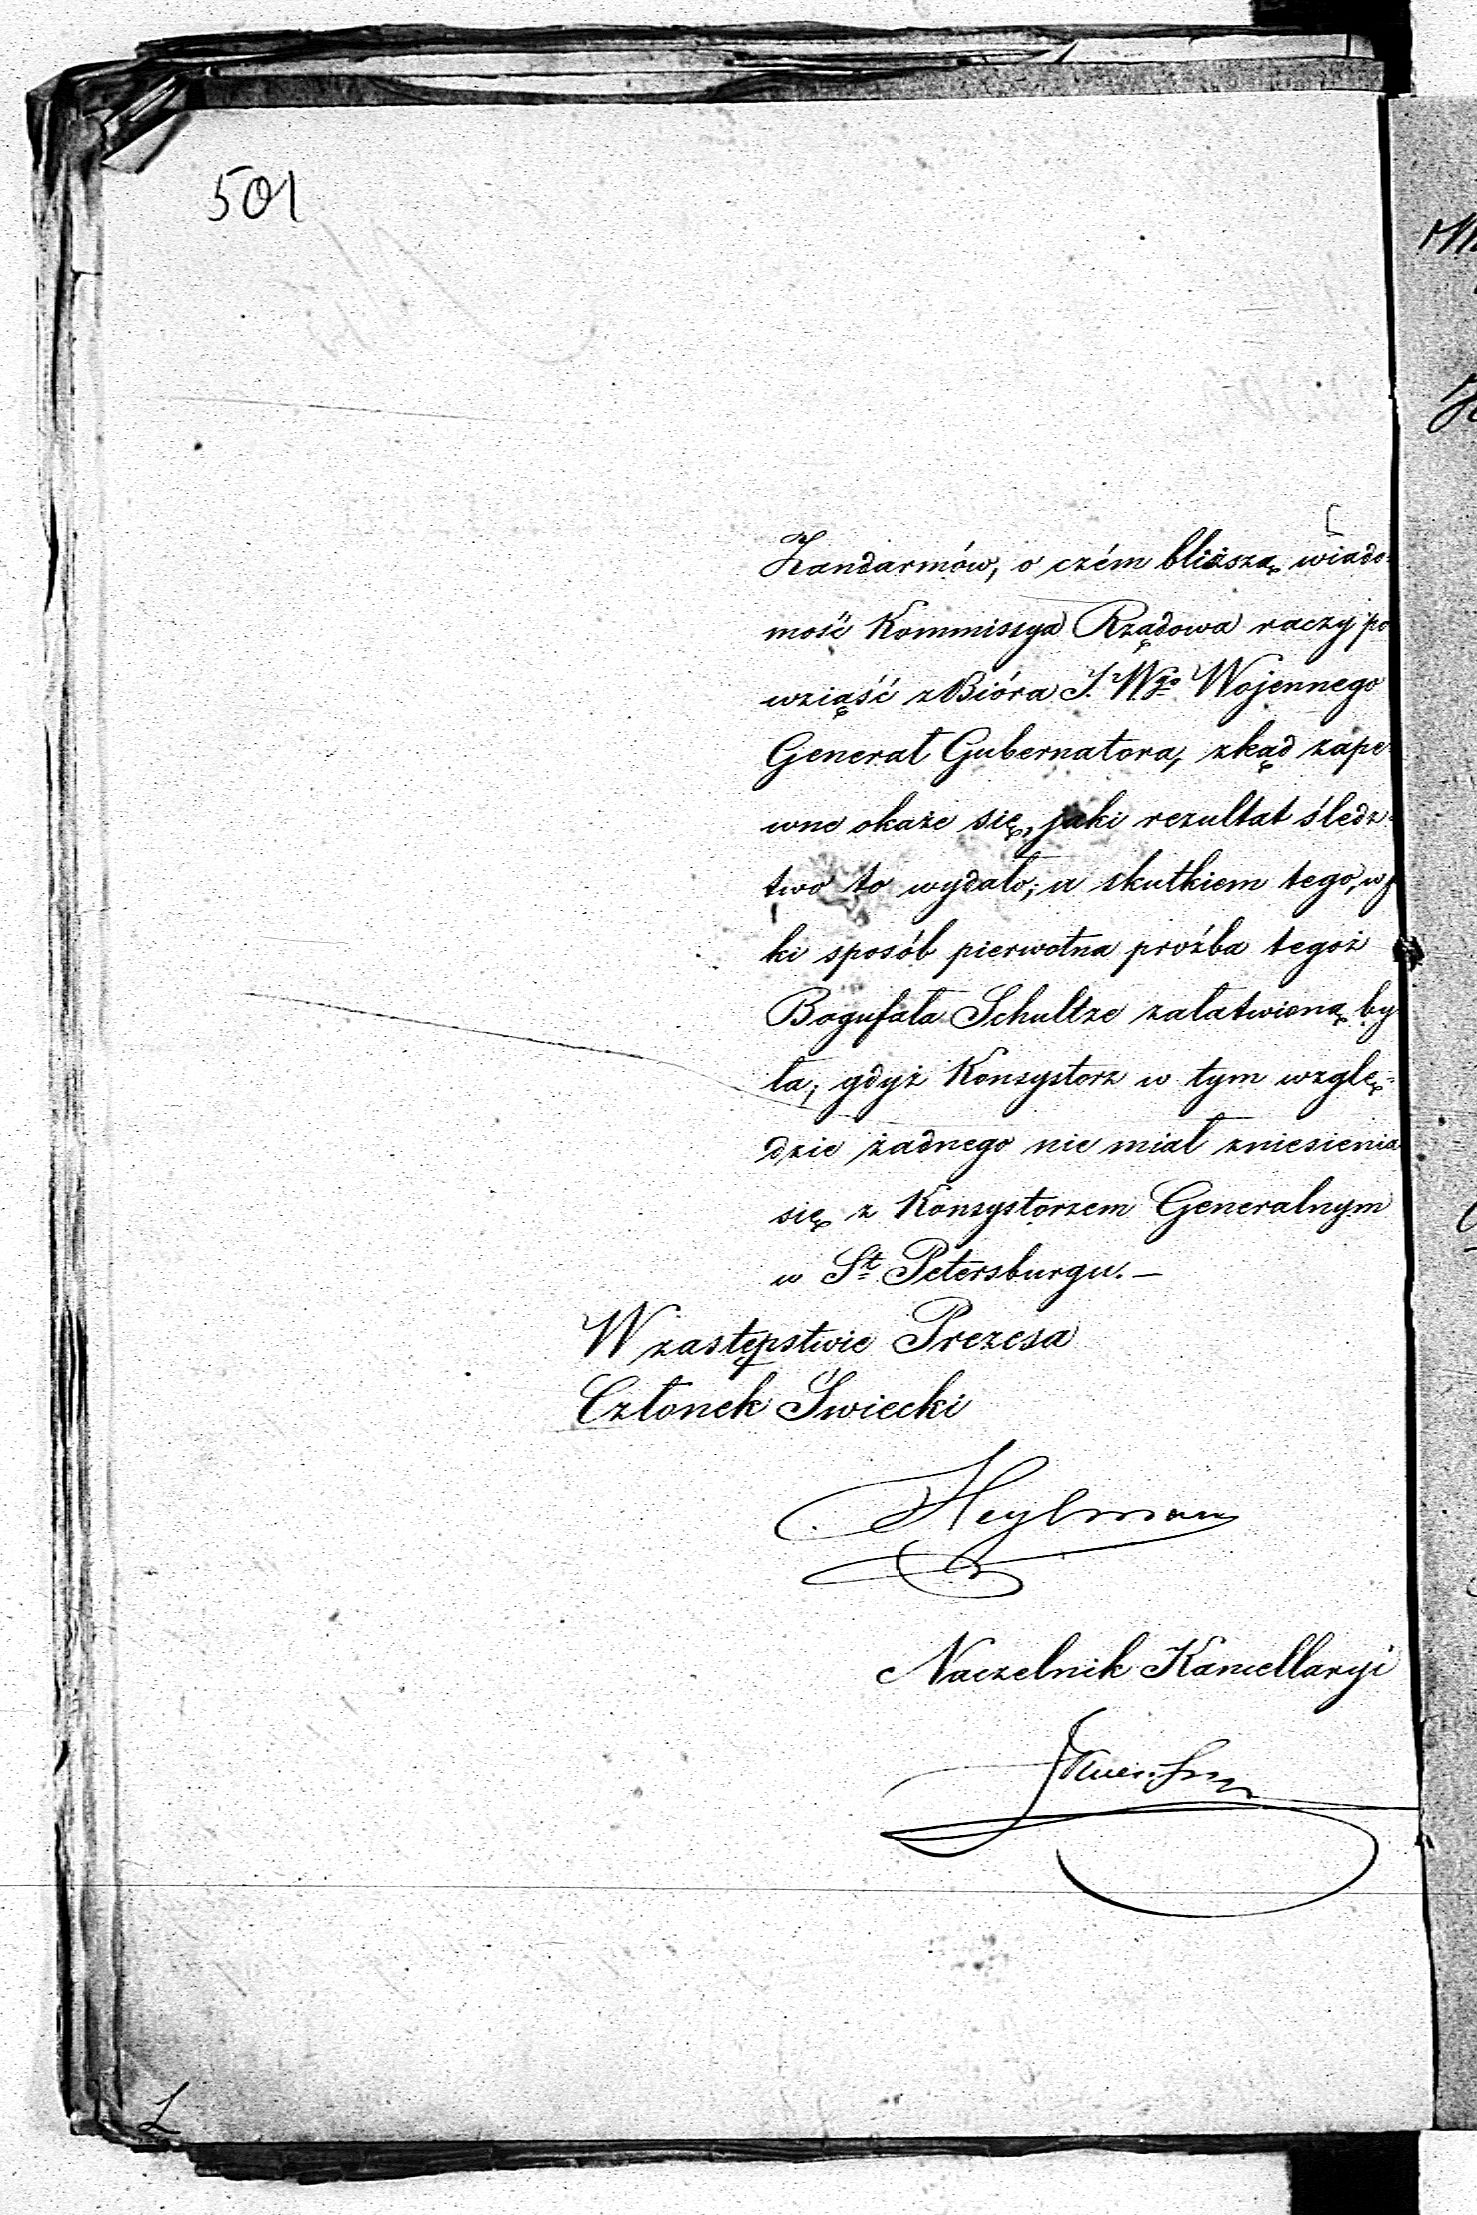 501
Żandarmów, o czém bliższą wiado-
mość Kommissya Rządowa raczy po
wziąść z Bióra J. Wgo Wojennego
Generał Gubernatora, zkąd zape-
wne okaże się, jaki rezultat śledz-
two to wydało; a skutkiem tego, w ja
ki sposób pierwotna proźba tegoż
Bogufała Schultze załatwioną by
ła; gdyż Konsystorz w tym wzglę-
dzie żadnego nie miał zniesienia
się z Konsystorzem Generalnym
w St. Petersburgu. —
W zastępstwie Prezesa
Członek Świecki
Heylman
Naczelnik Kancellaryi